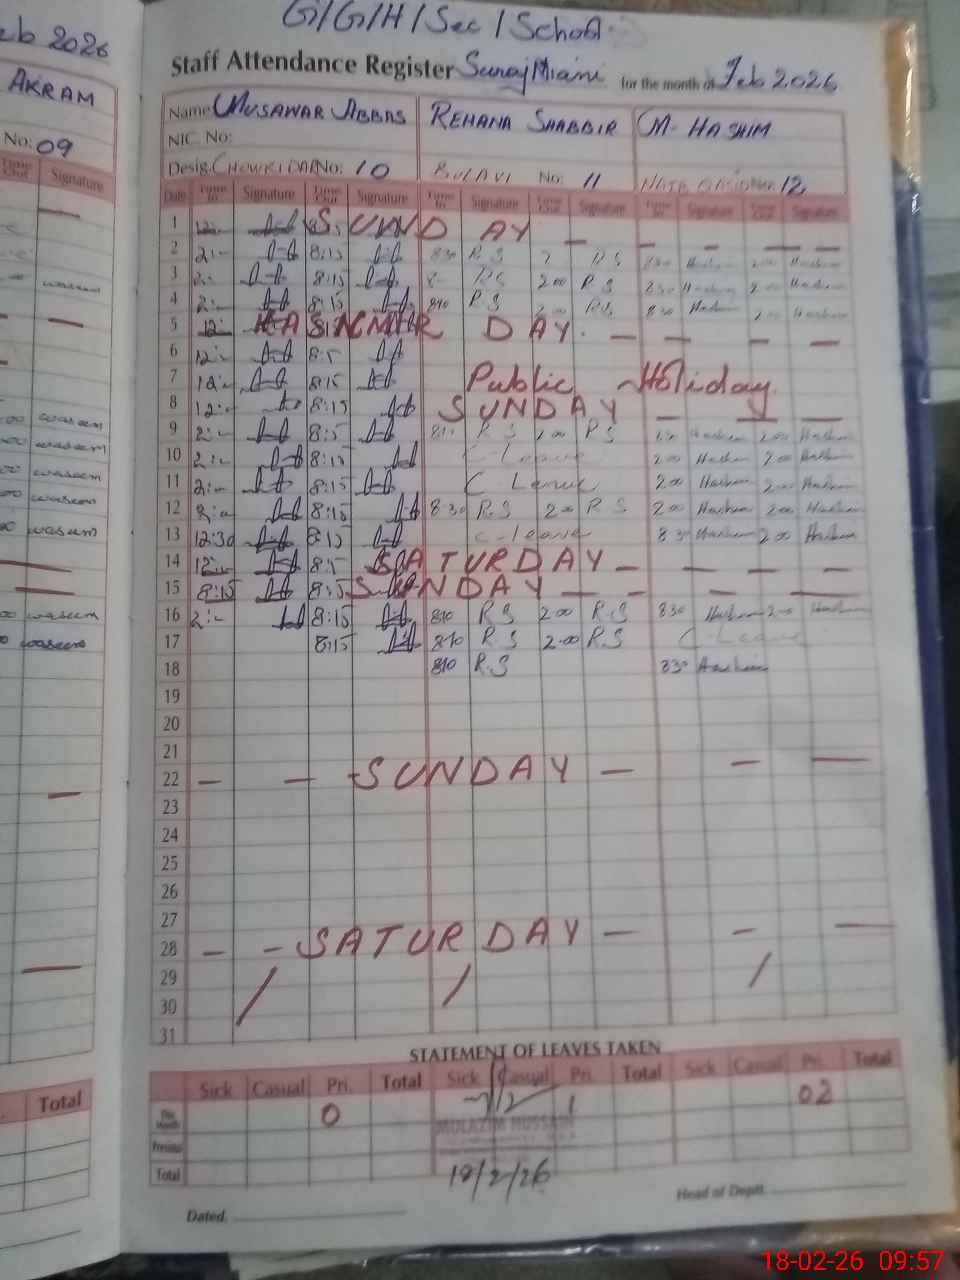 Feb 2026
AKRAM
No: 09
Time Out Signature
waseem
waseem
waseem
waseem
waseem
wasum
waseem
waseem
Total
G/G/H/Sec/School
Staff Attendance Register Suraj Miani for the month of Feb 2026
Name MUSAWAR ABBAS REHANA SHABBIR M. HASHIM
NIC. No:
Desig. CHOWKIDAR No: 10 No: 11 No: 12
Date Time In Signature Time Out Signature Time In Signature Time Out Signature Time In Signature Time Out Signature
1 12:- SUNDAY — — — — —
2 2:- 8:15 830 R S R S 830 Hashim 200 Hashim
3 2:- 8:15 8- RS 200 R S 830 Hashim 200 Hashim
4 2:- 8:15 840 R S RS 830 Hashim 200 Hashim
5 12:- KASHMIR DAY. — — — —
6 12:- 8:5
7 12:- 8:15 Public Holiday
8 12:- 8:15 SUNDAY — — — —
9 2:- 8:5 810 R S 200 R S Hashim 200 Hashim
10 2:- 8:15 C Leave 200 Hashim 200 Hashim
11 2:- 8:15 C Leave 200 Hashim 200 Hashim
12 2:- 8:15 830 R.S 200 R S 200 Hashim 200 Hashim
13 12:30 8:15 C-leave 830 Hashim 200 Hashim
14 12:- 8:5 SATURDAY — — — —
15 8:15 8:5 SUNDAY — — — —
16 2:- 8:15 810 R S 200 R S 830 Hashim 200 Hashim
17 8:15 810 R S 200 RS C-Leave
18 810 R.S 830 Hashim
19
20
21
22 — — SUNDAY — — —
23
24
25
26
27
28 — — SATURDAY — — —
29
30
31
STATEMENT OF LEAVES TAKEN
Sick Casual Pri. Total Sick Casual Pri. Total Sick Casual Pri. Total
This Month 0 1 02
Previous
Total
MULAZIM HUSSAIN
18/2/26
Dated. Head of Deptt.
18-02-26 09:57